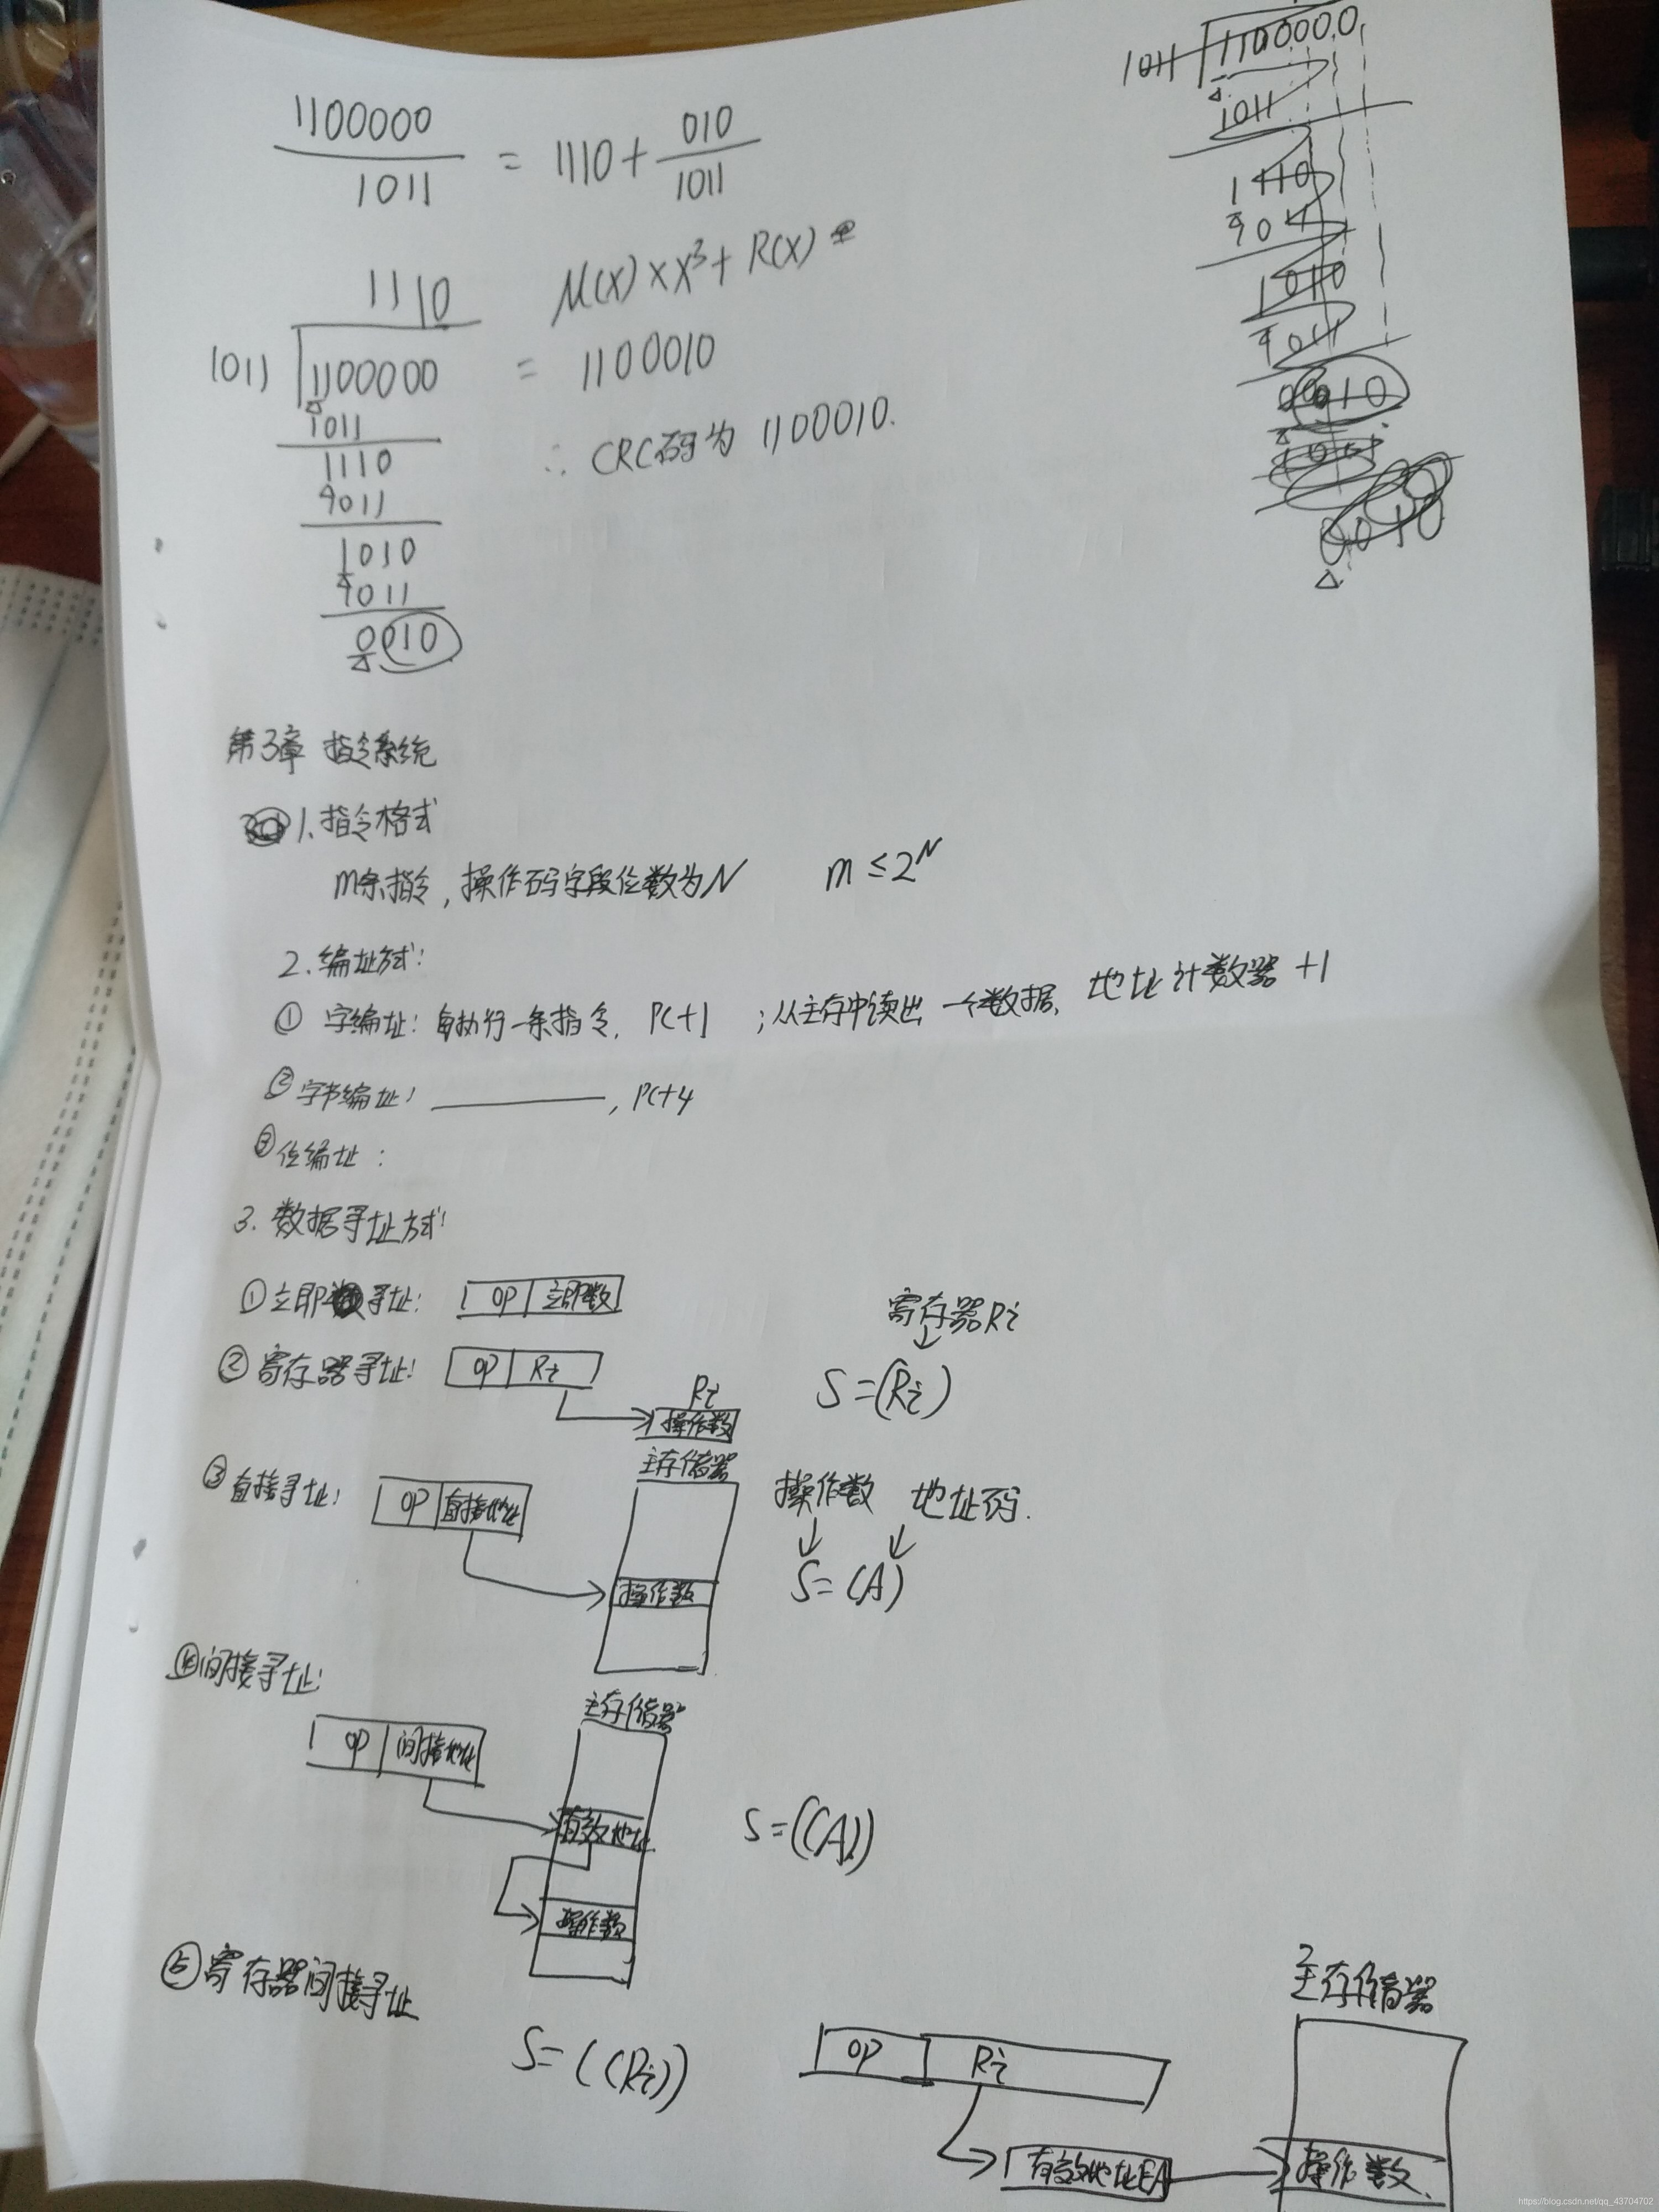 1100000
1011
= 1110 + 010
1011
1110
M(X)×X³+R(X)
1011
1100000
= 1100010
∴ CRC码为 1100010.
1011
1110
1011
1010
1011
0010
1011
1100000
1011
1110
1011
1010
1011
0010
0010
第3章 指令系统
1. 指令格式
m条指令, 操作码字段位数为N m ≤ 2ᴺ
2. 编址方式:
① 字编址: 每执行一条指令, PC+1 ; 从主存中读出一个数据, 地址计数器 +1
② 字节编址: ————, PC+4
③ 位编址:
3. 数据寻址方式:
① 立即寻址: OP 立即数
寄存器Ri
② 寄存器寻址: OP Ri
S=(Ri)
Ri
操作数
主存储器
③ 直接寻址: OP 直接地址
操作数 地址码.
S=(A)
操作数
④ 间接寻址:
主存储器
OP 间接地址
有效地址
S=((A))
操作数
⑤ 寄存器间接寻址
主存储器
S=((Ri))
OP Ri
有效地址EA
操作数.
https://blog.csdn.net/qq_43704702